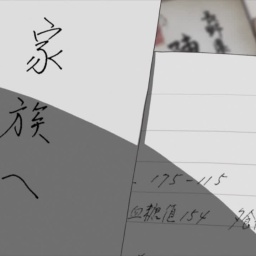 家族へ
. 175-115
血糖値 154 夕食